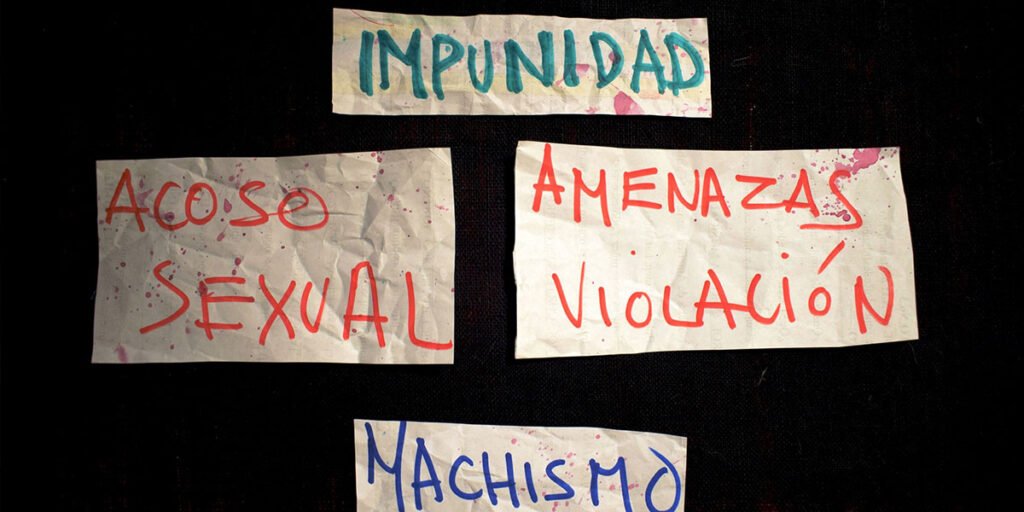 IMPUNIDAD
ACOSO
SEXUAL
AMENAZAS
VIOLACIÓN
MACHISMO